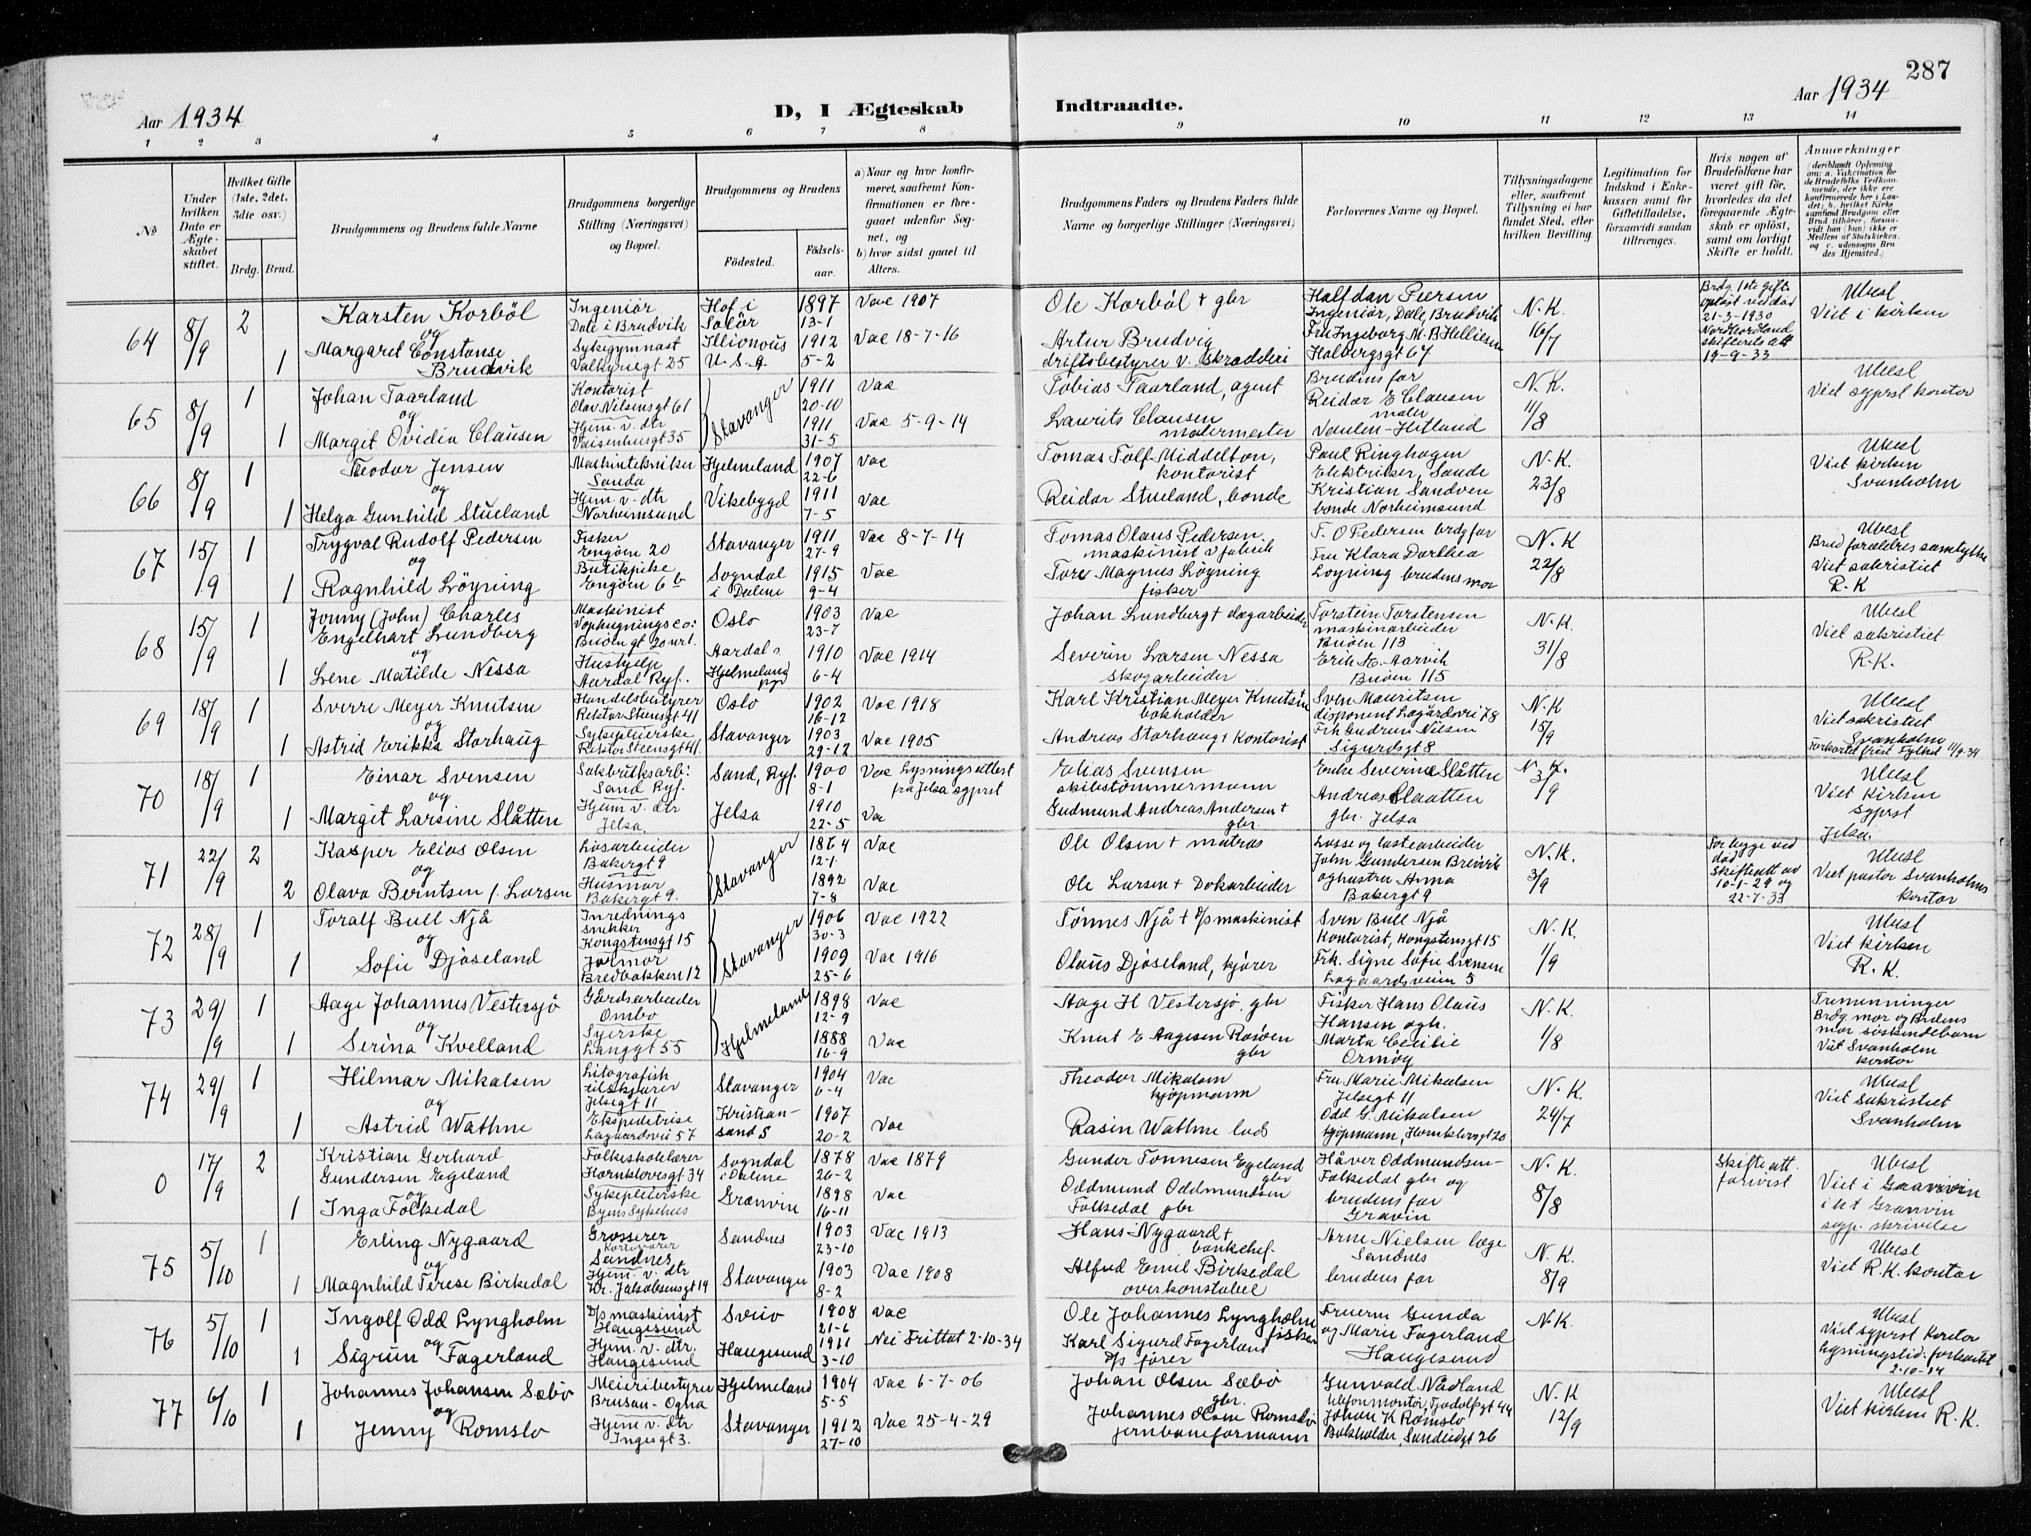 287
Aar 1934
D, I Ægteskab
Indtraadte.
Aar 1934
1 2 3 4 5 6 7 8 9 10 11 12 13 14
No
Under hvilken Dato er Ægteskabet stiftet.
Hvilket Gifte (1ste, 2det, 3die osv.)
Brdg. Brud.
Brudgommens og Brudens fulde Navne
Brudgommens borgerlige Stilling (Næringsvei) og Bopæl.
Brudgommens og Brudens
Fødested.
Fødselsaar.
a) Naar og hvor konfirmeret, saafremt Konfirmationen er foregaaet udenfor Sognet, og
b) hvor sidst gaaet til Alters.
Brudgommens Faders og Brudens Faders fulde Navne og borgerlige Stillinger (Næringsvei)
Forlovernes Navne og Bopæl.
Tillysningsdagene eller, saafremt Tillysning ei har fundet Sted, efter hvilken Bevilling.
Legitimation for Indskud i Enkekassen samt for Giftetilladelse, forsaavidt saadan tiltrænges.
Hvis nogen af Brudefolkene har været gift før, hvorledes da det foregaaende Ægteskab er opløst, samt om lovligt Skifte er holdt.
Anmærkninger
64 8/9 2 Karsten Korbøl Ingeniør Dale i Brudvik Hof i Solør 1897 13-1 Vac 1907
og
1 Margaret Constanse Brudvik Sykegymnast Valkyriegt 25 Illionois U.S.A. 1912 5-2 Vac 18-7-16
Ole Korbøl + gbr Halfdan Iversen Ingeniør, Dale, Brudvik N.K. 16/7 Brdg. 1ste gift. opløst ved død 21-3-1930 Nordhordland skifterets att 19-9-33 Ubesl Viet i kirken
Artur Brudvig driftsbestyrer v. Skrædderi Fru Ingeborg M. B. Helliesen Holbergsgt 67
65 8/9 1 Johan Taarland Kontorist Olav Nilsensgt 61 Stavanger 1911 20-10 Vac
og
1 Margit Ovidia Clausen Hjem. v. dtr Vaisenhusgt 35 1911 31-5 Vac 5-9-14
Tobias Taarland, agent Brudens far N.K. 11/8 Ubesl Viet sgprst kontor
Laurits Clausen malermester Reidar E Clausen maler Vaulen-Hetland
66 8/9 1 Teodor Jensen Maskintekniker Sauda Hjelmeland 1907 22-6 Vac
og
1 Helga Gunhild Stueland Hjem. v. dtr Norheimsund Vikebygd 1911 7-5 Vac
Tomas Tolf Middelton, kontorist Paul Ringhagen Elektriker, Saude N.K. 23/8 Ubesl Viet kirken Svanholm
Reidar Stueland, bonde Kristian Sandven bonde Norheimsund
67 15/9 1 Trygval Rudolf Pedersen Fisker Engøen 20 Stavanger 1911 27-9 Vac 8-7-14
og
1 Ragnhild Løyning Butikpike Engøen 6b Sogndal i Dalene 1915 9-4 Vac
Tomas Olaus Pedersen. maskinist v fabrik T. O Pedersen brdg far N.K 22/8 Ubesl Brud forældres samtykke Viet sakristiet R.K
Tore Magnus Løyning fisker Fru Klara Dorthea Løyning brudens mor
68 15/9 1 Jonny (John) Charles Engelhart Lundberg Maskinist Ophugningsco: Buøen gt 20 url. Oslo 1903 23-7 Vac
og
1 Lene Matilde Nessa Hushjelp Aardal Ryf. Aardal Hjelmeland pgr 1910 6-4 Vac 1914
Johan Lundberg + dagarbeider Torstein Torstensen maskinarbeider Buøen 113 N.K. 31/8 Ubesl Viet sakristiet R.K.
Severin Larsen Nessa skogarbeider Erik H. Aarvik Buøen 115
69 18/9 1 Sverre Meyer Knutsen Handelsbestyrer Rektor Steensgt 41 Oslo 1902 16-12 Vac 1918
og
1 Astrid Erikka Storhaug Sykepleierske Rektor Steensgt 41. Stavanger 1903 29-12 Vac 1905
Karl Kristian Meyer Knutsen + bokholder Sven Mauritsen disponent Lagårdsvei 78 N.K 15/9 Ubesl Viet sakristiet Svanholm Forkortet frist Fylket 11/9-34
Andreas Storhaug + Kontorist Frk Gudrun Nilsen Sigurdsgt 8
70 18/9 1 Einar Svensen Sakbruksarb: Sand Ryf. Sand, Ryf. 1900 8-1 Vac Lysningsattest fra Jelsa sgprst
og
1 Margit Larsine Slåtten Hjem v. dtr Jelsa. Jelsa 1910 22-5 Vac
Elias Svensen skibstømmermann Enke Severine Slåtten N.K. 3/9 Ubesl Viet Kirken sgprst Jelsa.
Gudmund Andreas Andersen + gbr Andreas Slaatten gbr. Jelsa
71 22/9 2 Kasper Elias Olsen Løsarbeider Bakergt 9 Stavanger 1864 12-1. Vac
og
2 Olava Berntsen f. Larsen Husmor Bakergt 9. 1892 7-8 Vac
Ole Olsen + matros Losse og lastearbeider John Gundersen Breivik N.K. 3/9 For begge ved død Skifteatt av 10-1-29 og 22-7-33 Ubesl Viet pastor Svanholms kontor
Ole Larsen + Dokarbeider og hustru Anna Bakergt 9
72 28/9 1 Toralf Bull Njå Inrednings snekker Kongstensgt 15 Stavanger 1906 30-3 Vac 1922
og
1 Sofie Djøseland Jormor Bredbakken 12 1909 25-6 Vac 1916
Tønnes Njå + D/s maskinist Sven Bull Njå Kontorist, Kongstensgt 15 N.K. 1/9 Ubesl Viet kirken R.K.
Olaus Djøseland, kjører Frk. Signe Sofie Svensen Lagaardsveien 5
73 29/9 1 Aage Johannes Vestersjø Gårdsarbeider Ombo Hjelmeland 1898 12-9 Vac
og
1 Serina Kvelland Syerske Langgt 55 1888 16-9 Vac
Aage H Vestersjø. gbr Fisker Hans Olaus Hansen ogh. N.K. 1/8 Tremenninger Brdg. mor og Brudens mor søskendebarn Viet Svanholm kontor
Knut E Aagesen Rosøen gbr Marta Cecilie Ormøy
74 29/9 1 Hilmar Mikalsen Litografisk tilskjærer Jelsegt 11 Stavanger 1904 6-4 Vac
og
1 Astrid Wathne Ekspeditrise Lagaardsvei 57 Kristiansand S 1907 20-2 Vac
Theodor Mikalsen kjøpmann Fru Marie Mikalsen Jelsegt 11 N.K. 24/7 Ubesl Viet Sakristiet Svanholm
Rasin Wathne lods Odd G. Mikalsen kjøpmann, Hornklovesgt 20
0 17/9 2 Kristian Gerhard Gundersen Egeland Folkeskolelærer Hornklovesgt 34 Sogndal i Dalene 1878 26-2 Vac 1879
og
1 Inga Folkedal Sykepleierske Byens Sykehus Granvin 1898 16-11 Vac
Gunder Tønnesen Egeland gbr Håver Oddmundsen Folkedal gbr og N.K. 8/8 Skifteatt. forvist Ubesl Viet i Graavin ikt Granvin sgp. skrivelse
Oddmund Oddmundsen Folkedal gbr brudens far Gravin
75 5/10 1 Erling Nygaard Grosserer Kortevarer Sandnes Sandnes 1903 23-10 Vac 1913
og
1 Magnhild Terese Birkedal Hjem. v. dtr Kr. Jakobsensgt 19 Stavanger 1903 8-2 Vac 1908
Hans Nygaard + bankchef. Arne Nielsen læge Sandnes N.K. 8/9 Ubesl Viet R.K. kontor
Alfred Emil Birkedal overkonstabel brudens far
76 5/10 1 Ingolf Odd Lyngholm D/s maskinist Haugesund Sveio 1908 21-6 Vac
og
1 Sigrun Fagerland Hjem. v. dtr. Haugesund Haugesund 1911 3-10 Nei Frittat 2-10-34
Ole Johannes Lyngholm fisker Fruerne Gunda og Marie Fagerland Haugesund N.K. Ubesl Viet sgprst kontor Lysningstid. forkortet 2-10-34
Karl Sigurd Fagerland D/s fører
77 6/10 1 Johannes Johansen Sæbø Meieribestyrer Brusan-Ogna Hjelmeland 1904 5-5 Vac 6-7-06
og
1 Jenny Romslo Hjem v. dtr Ingesgt 3. Stavanger 1912 27-10 Vac 25-4-29
Johan Olsen Sæbø gbr. Gunvald Nådland telefonmontør, Tjodolfsgt 44 N.K 12/9 Ubesl Viet kirken R.K.
Johannes Olsen Romslo jernbaneformann Johan K Romslo Bokholder, Sandeidgt 26